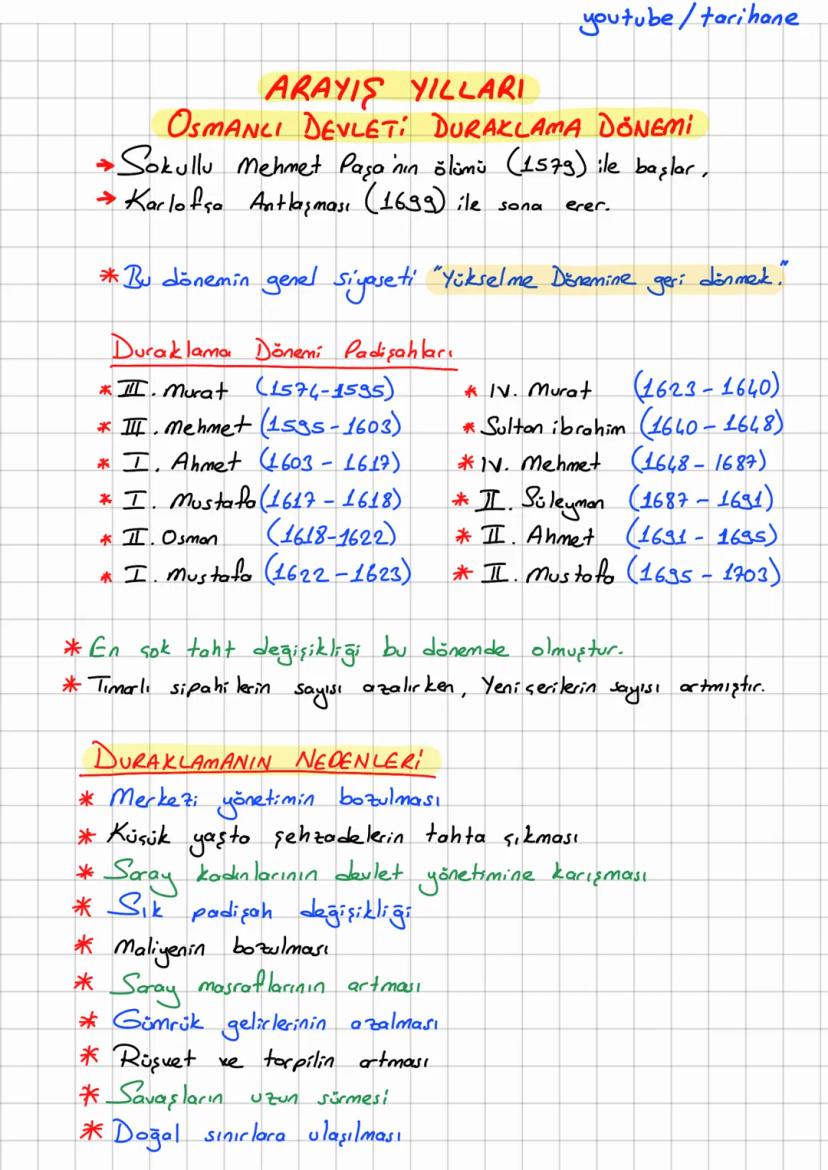 youtube/tarihane
ARAYIŞ YILLARI
OSMANLI DEVLETİ DURAKLAMA DÖNEMİ
→ Sokullu Mehmet Paşa'nın ölümü (1579) ile başlar.
→ Karlofça Antlaşması (1699) ile sona erer.
* Bu dönemin genel siyaseti "Yükselme Dönemine geri dönmek."
Duraklama Dönemi Padişahları
* III. Murat (1574-1595)
* III. Mehmet (1595-1603)
* I. Ahmet (1603 - 1617)
* I. Mustafa (1617 - 1618)
* II. Osman (1618-1622)
* I. Mustafa (1622-1623)
* IV. Murat (1623 - 1640)
* Sultan ibrahim (1640 - 1648)
* IV. Mehmet (1648 - 1687)
* II. Süleyman (1687 - 1691)
* II. Ahmet (1691 - 1695)
* II. Mustafa (1695 - 1703)
* En çok taht değişikliği bu dönemde olmuştur.
* Tımarlı sipahilerin sayısı azalırken, Yeniçerilerin sayısı artmıştır.
DURAKLAMANIN NEDENLERİ
* Merkezi yönetimin bozulması
* Küçük yaşta şehzadelerin tahta çıkması
* Saray kadınlarının devlet yönetimine karışması
* Sık padişah değişikliği
* Maliyenin bozulması
* Saray masraflarının artması
* Gümrük gelirlerinin azalması
* Rüşvet ve torpilin artması
* Savaşların uzun sürmesi
* Doğal sınırlara ulaşılması